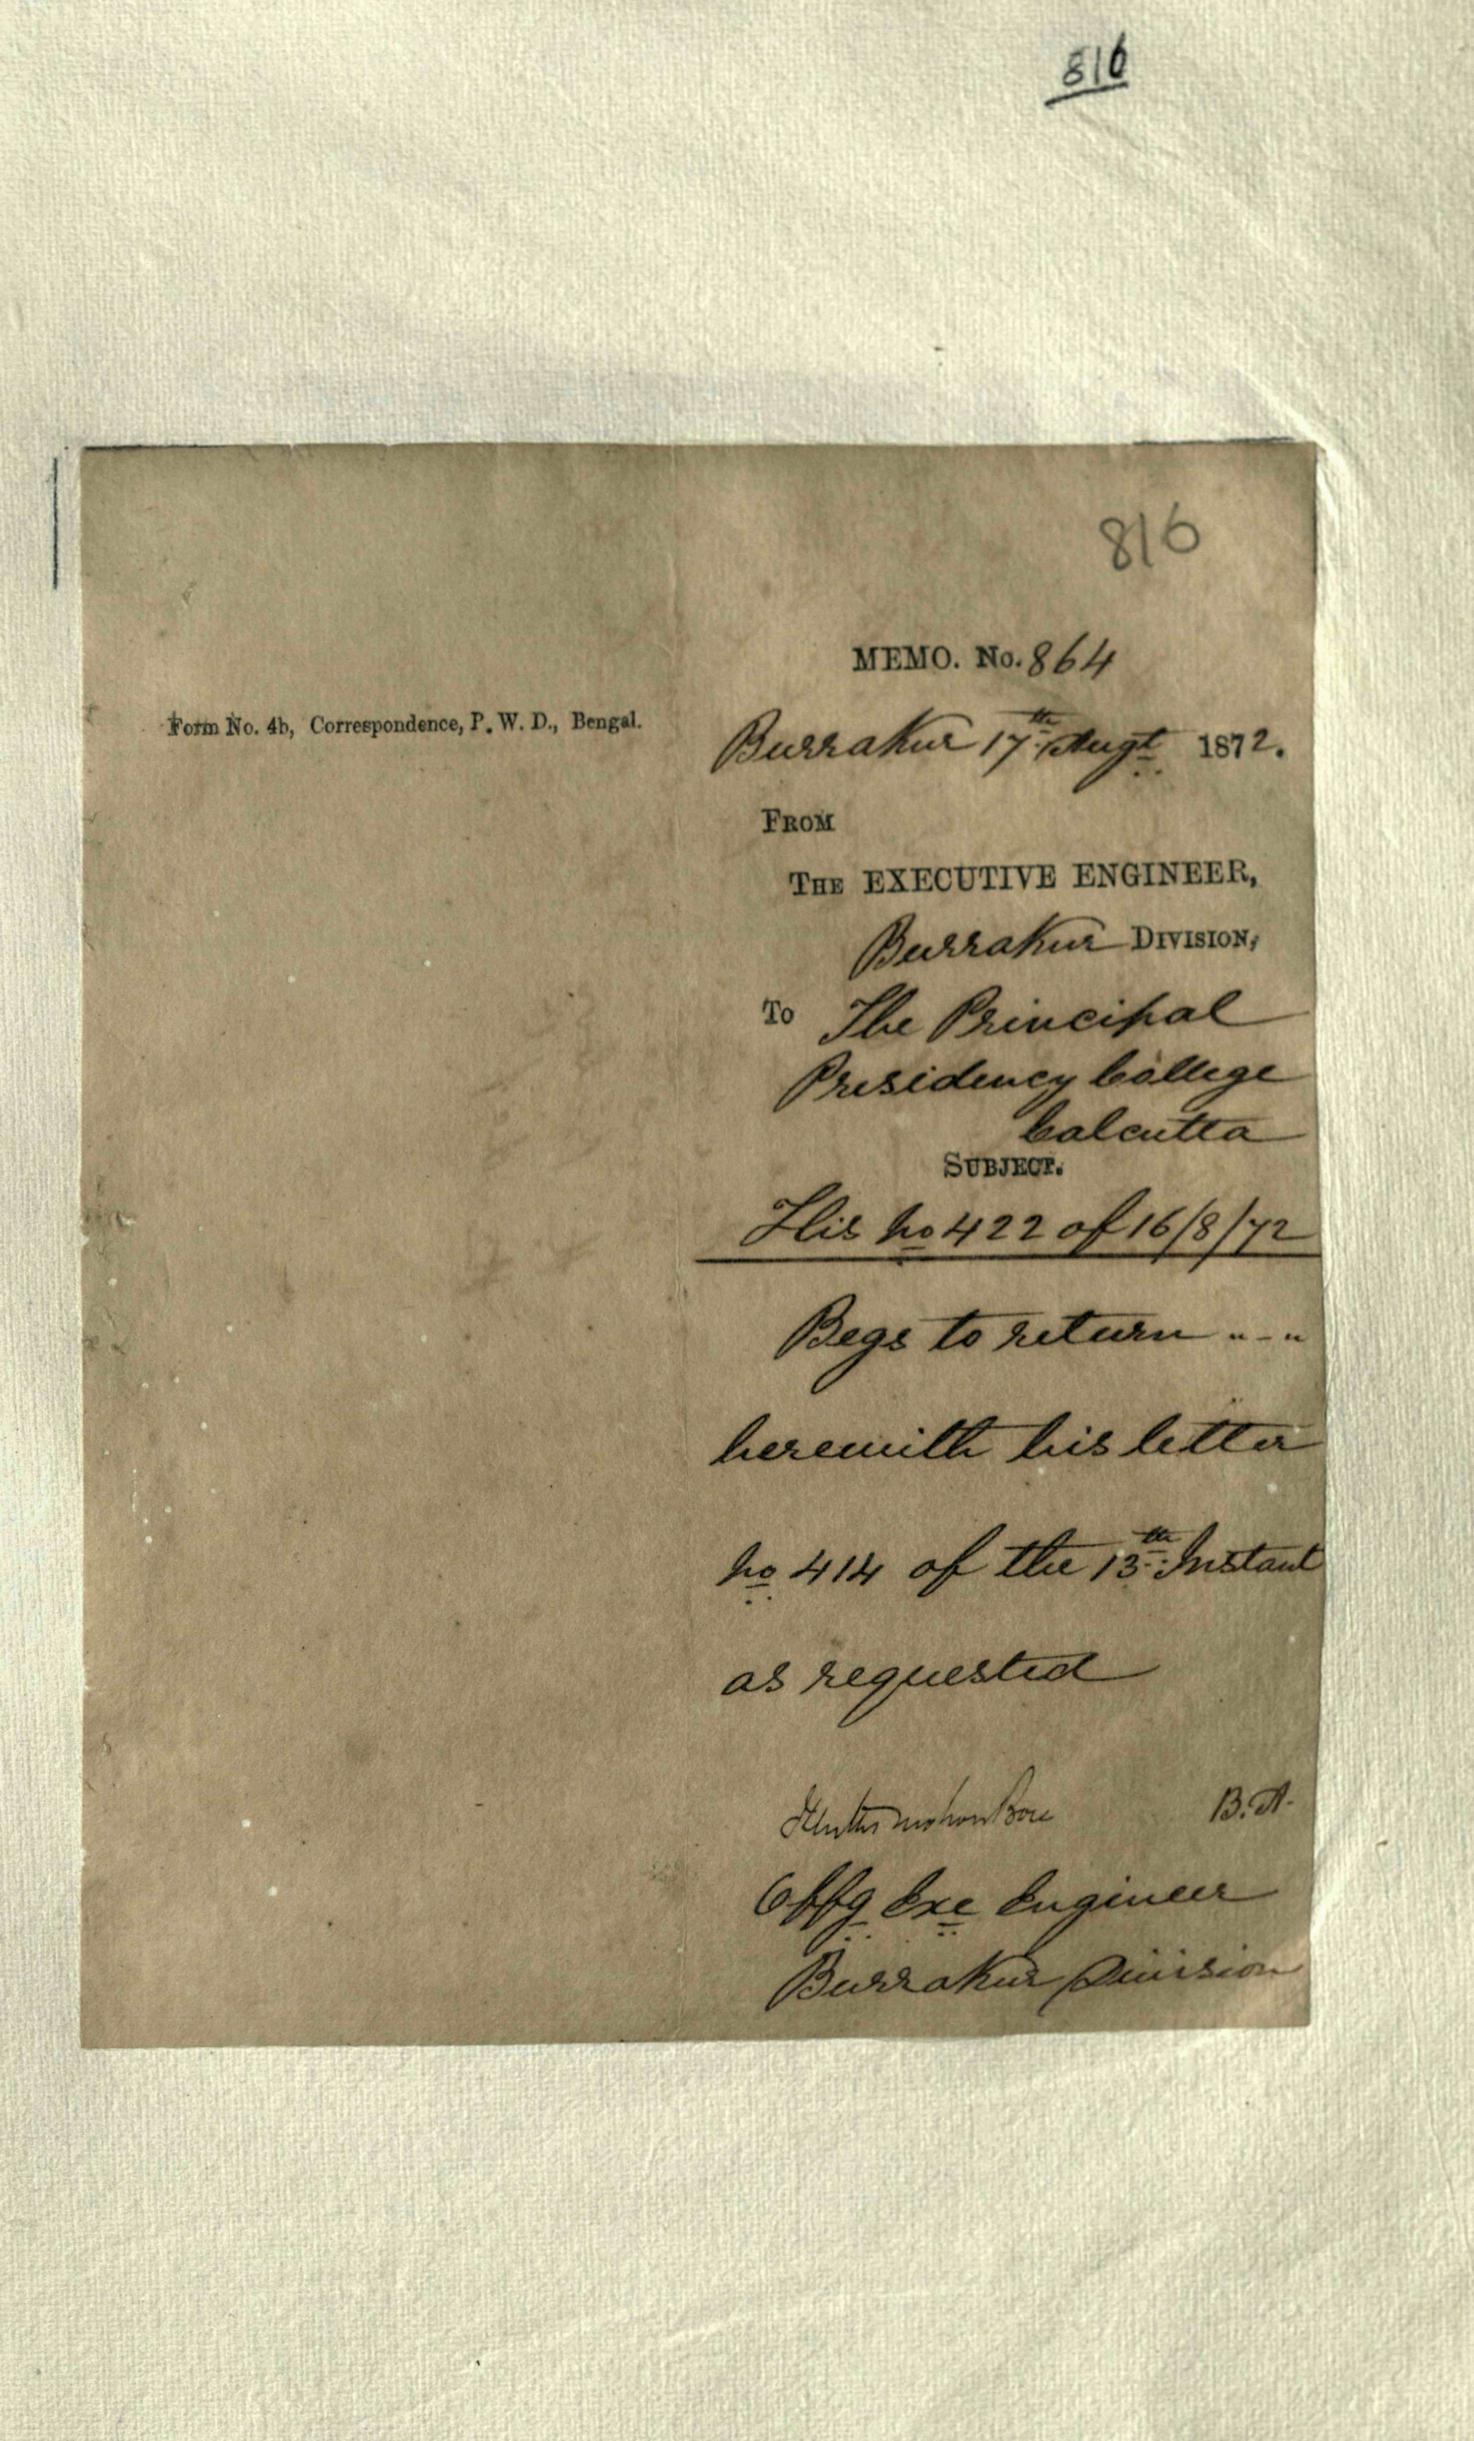 816
816
MEMO. No. 864
Form No. 4b, Correspondence, P. W. D., Bengal.
Burrakur 17th Augt 1872.
FROM
THE EXECUTIVE ENGINEER,
Burrakur DIVISION,
To The Principal
Presidency College
Calcutta
SUBJECT.
His No 422 of 16/8/72
Begs to return "-"
herewith his letter
No 414 of the 13th Instant
as requested
mohon Bose B.A.
Offg Exe Engineer
Burrakur Division